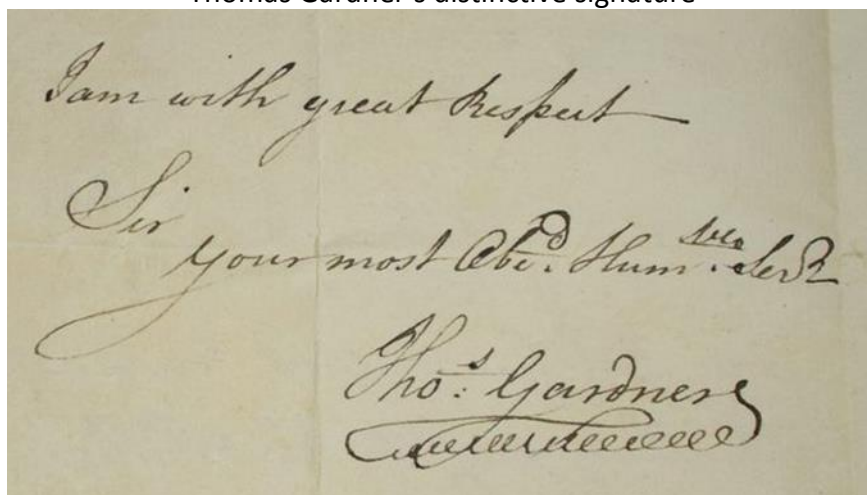 Thomas Gardner's distinctive signature
I am with great Respect
Sir
your most Obed. Humble. Servt
Thos: Gardner